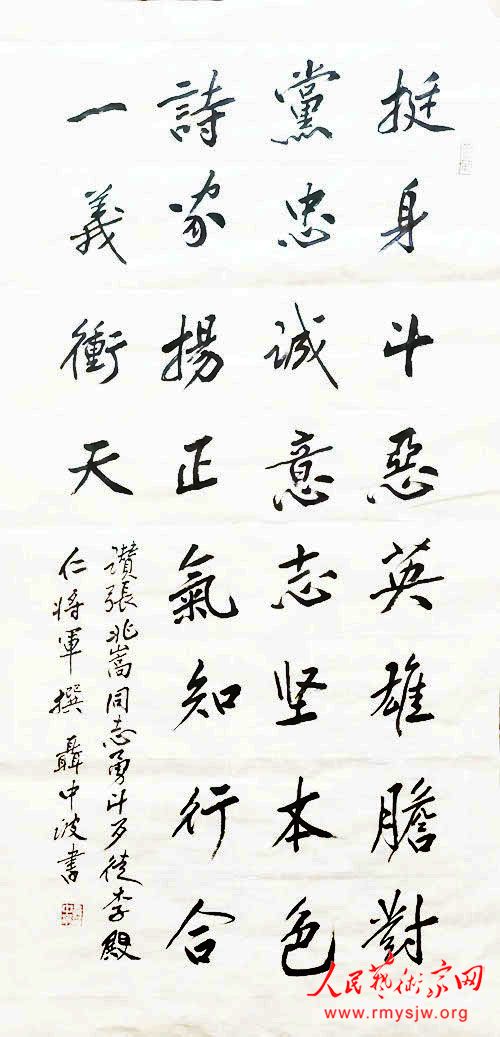 挺身斗惡英雄膽對
黨忠誠意志坚本色
詩家揚正氣知行合
一義衝天
讃張兆嵩同志勇斗歹徒李殿
仁将軍撰 聶中波書
人民藝術家网
www.rmysjw.org